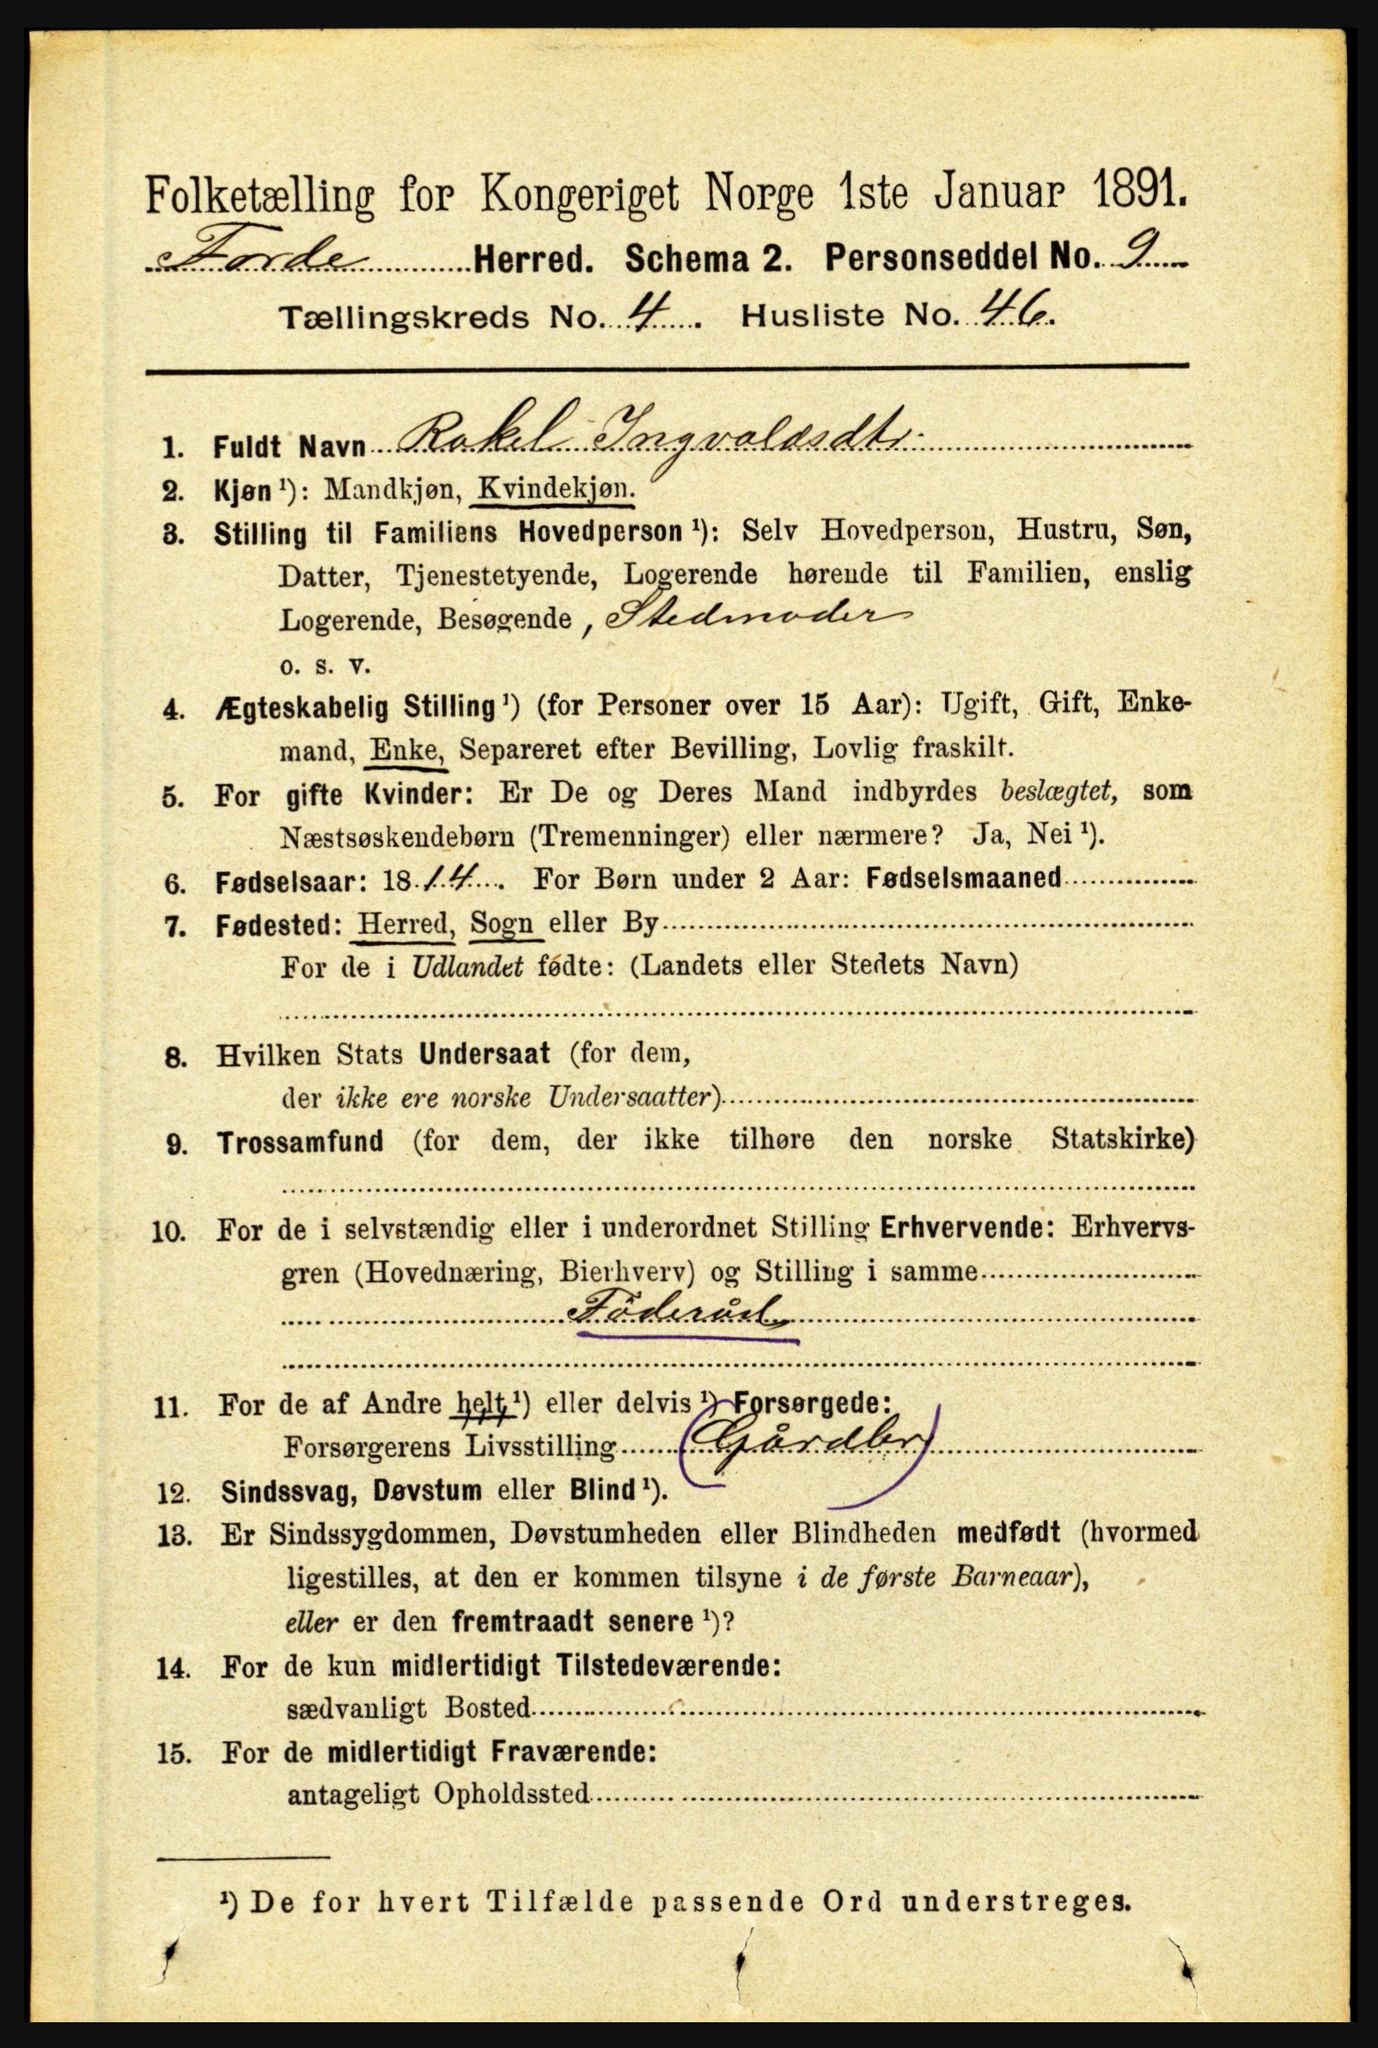 Folketælling for Kongeriget Norge 1ste Januar 1891.
Førde Herred. Schema 2. Personseddel No. 9
Tællingskreds No. 4. Husliste No. 46.
1. Fuldt Navn Rakel Ingvaldsdtr.
2. Kjøn ¹): Mandkjøn, Kvindekjøn.
3. Stilling til Familiens Hovedperson ¹): Selv Hovedperson, Hustru, Søn,
Datter, Tjenestetyende, Logerende hørende til Familien, enslig
Logerende, Besøgende, Stedmoder
o. s. v.
4. Ægteskabelig Stilling ¹) (for Personer over 15 Aar): Ugift, Gift, Enke-
mand, Enke, Separeret efter Bevilling, Lovlig fraskilt.
5. For gifte Kvinder: Er De og Deres Mand indbyrdes beslægtet, som
Næstsøskendebørn (Tremenninger) eller nærmere? Ja, Nei ¹).
6. Fødselsaar: 1814. For Børn under 2 Aar: Fødselsmaaned
7. Fødested: Herred, Sogn eller By
For de i Udlandet fødte: (Landets eller Stedets Navn)
8. Hvilken Stats Undersaat (for dem,
der ikke ere norske Undersaatter)
9. Trossamfund (for dem, der ikke tilhøre den norske Statskirke)
10. For de i selvstændig eller i underordnet Stilling Erhvervende: Erhvervs-
gren (Hovednæring, Bierhverv) og Stilling i samme
Föderåd
11. For de af Andre helt ¹) eller delvis ¹) Forsørgede:
Forsørgerens Livsstilling (Gårdbr)
12. Sindssvag, Døvstum eller Blind ¹).
13. Er Sindssygdommen, Døvstumheden eller Blindheden medfødt (hvormed
ligestilles, at den er kommen tilsyne i de første Barneaar),
eller er den fremtraadt senere ¹)?
14. For de kun midlertidigt Tilstedeværende:
sædvanligt Bosted
15. For de midlertidigt Fraværende:
antageligt Opholdssted
¹) De for hvert Tilfælde passende Ord understreges.